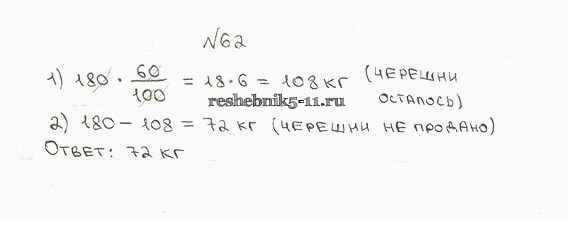 №62
1) 180 · 60/100 = 18·6 = 108 кг (черешни
осталось)
reshebnik5-11.ru
2) 180 – 108 = 72 кг (черешни не продано)
Ответ: 72 кг